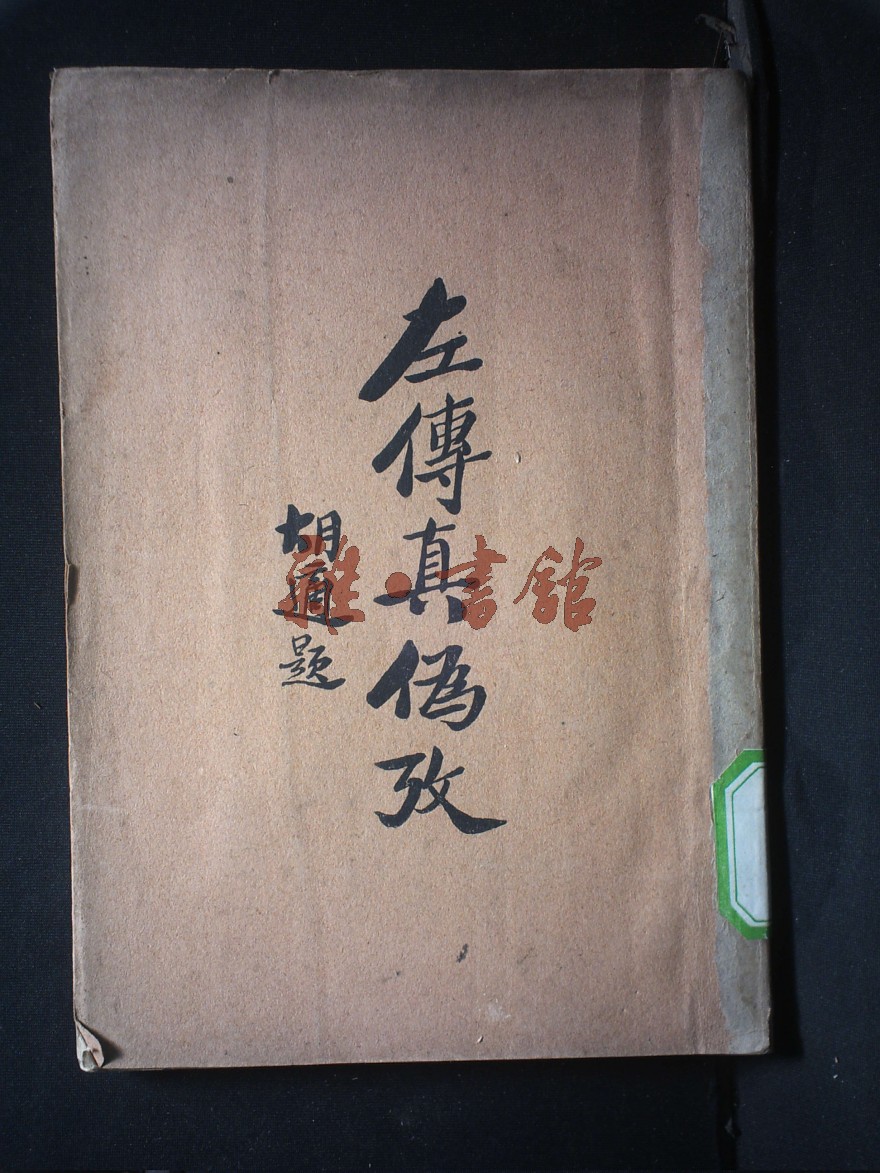 左傳真偽攷
胡適題
雜·書館